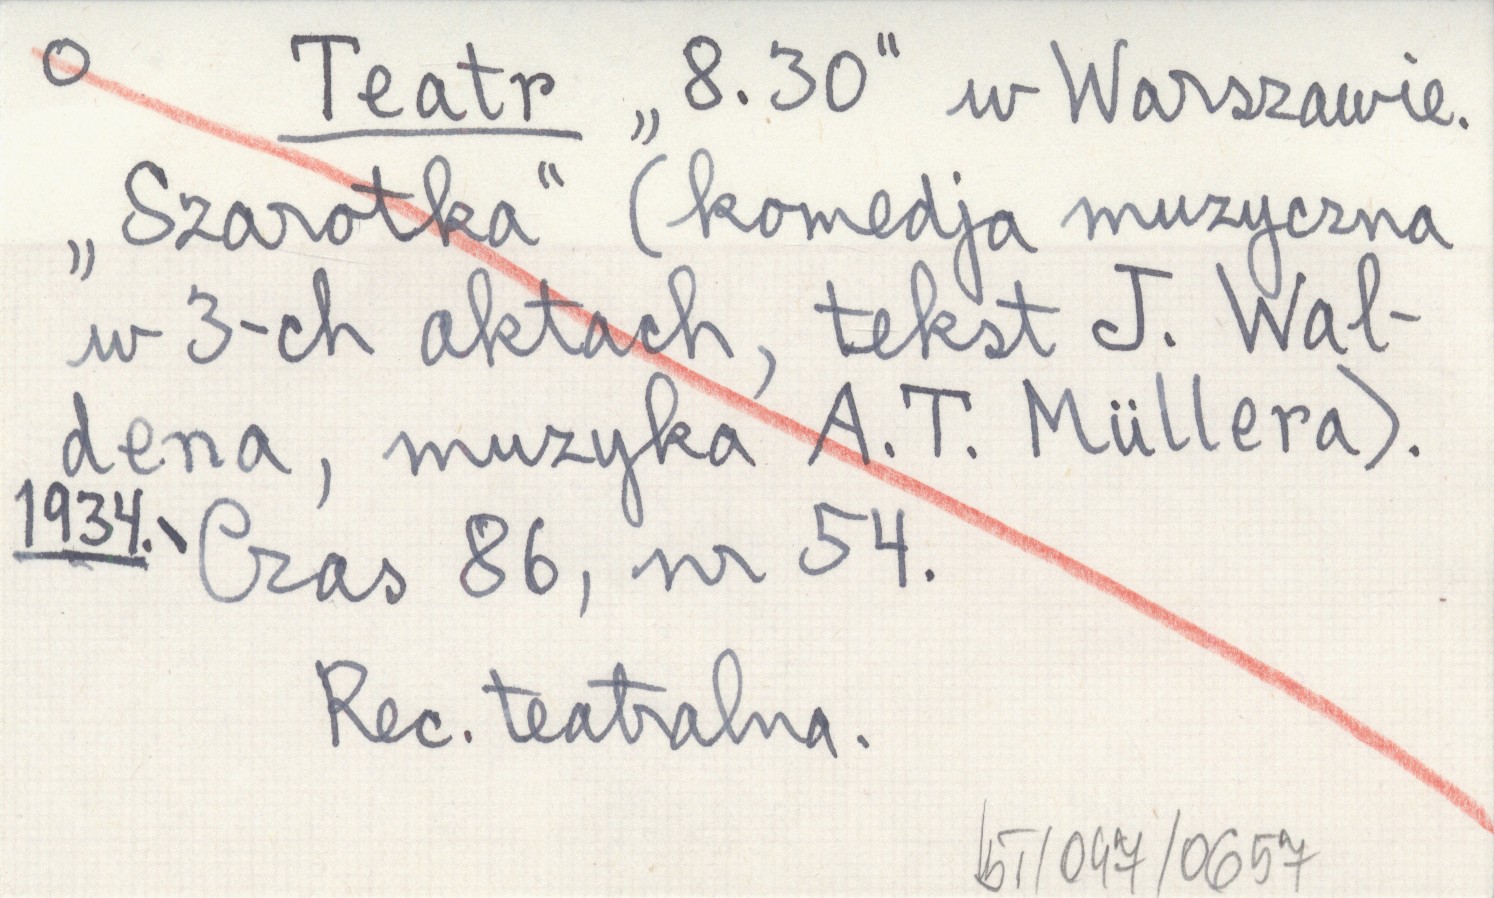 O Teatr „8.30“ w Warszawie.
„Szarotka“ (komedja muzyczna
w 3-ch aktach, tekst J. Wal-
dena, muzyka A.T. Müllera).
1934. Czas 86, nr 54.
Rec. teatralna.
/097/0657